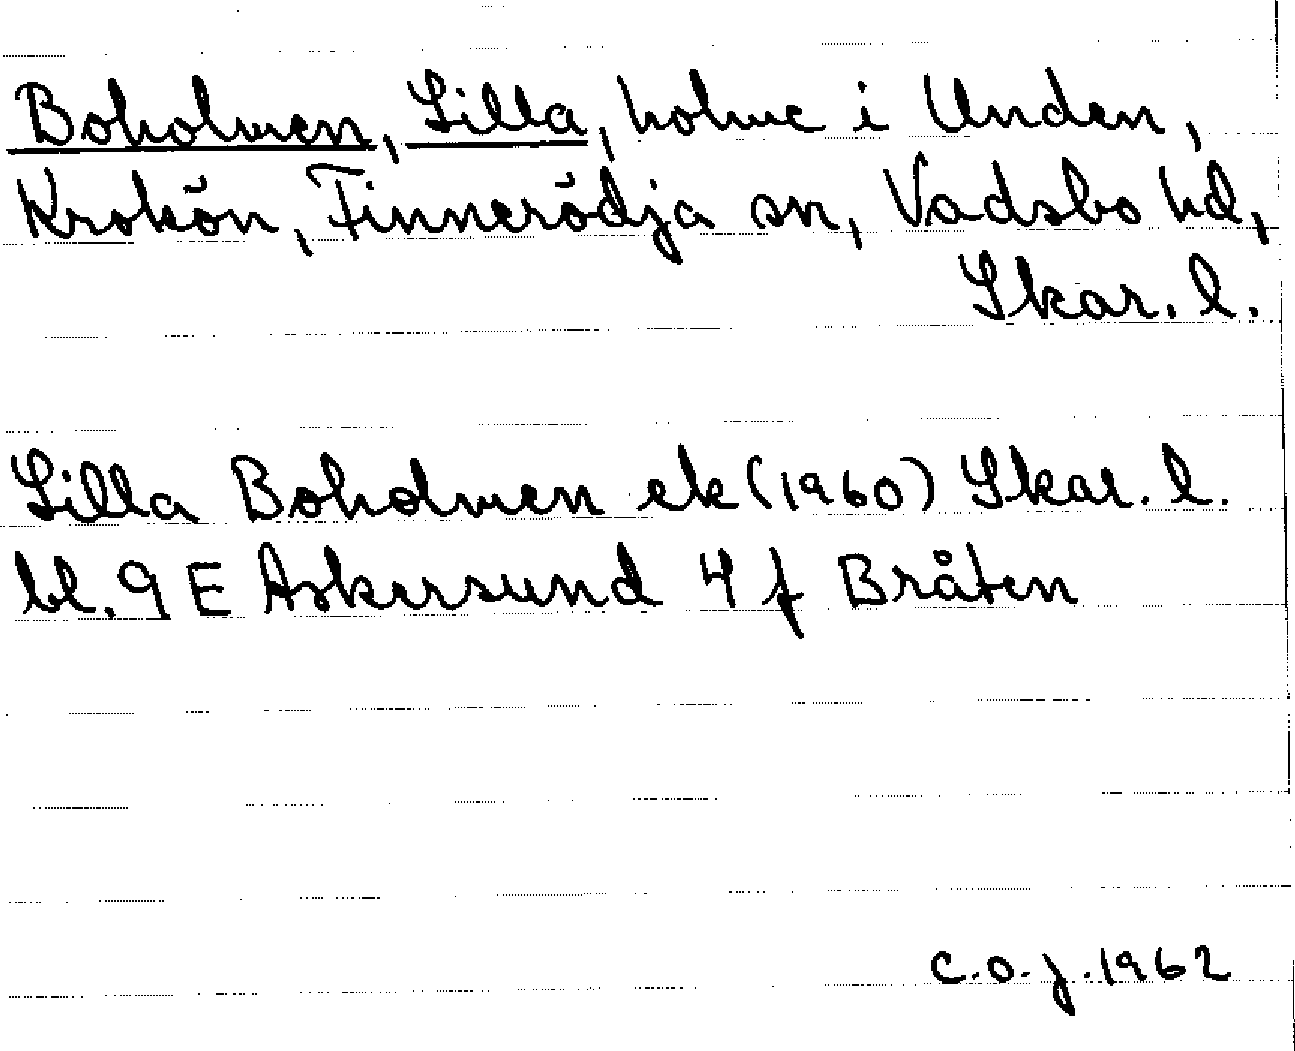 Boholmen, Lilla, holme i Unden,
Krokön, Finnerödja sn, Vadsbo hd,
Skar. l.
Lilla Boholmen ek (1960) Skar. l.
bl. 9 E Askersund 4 f Bråten
C.O.J. 1962